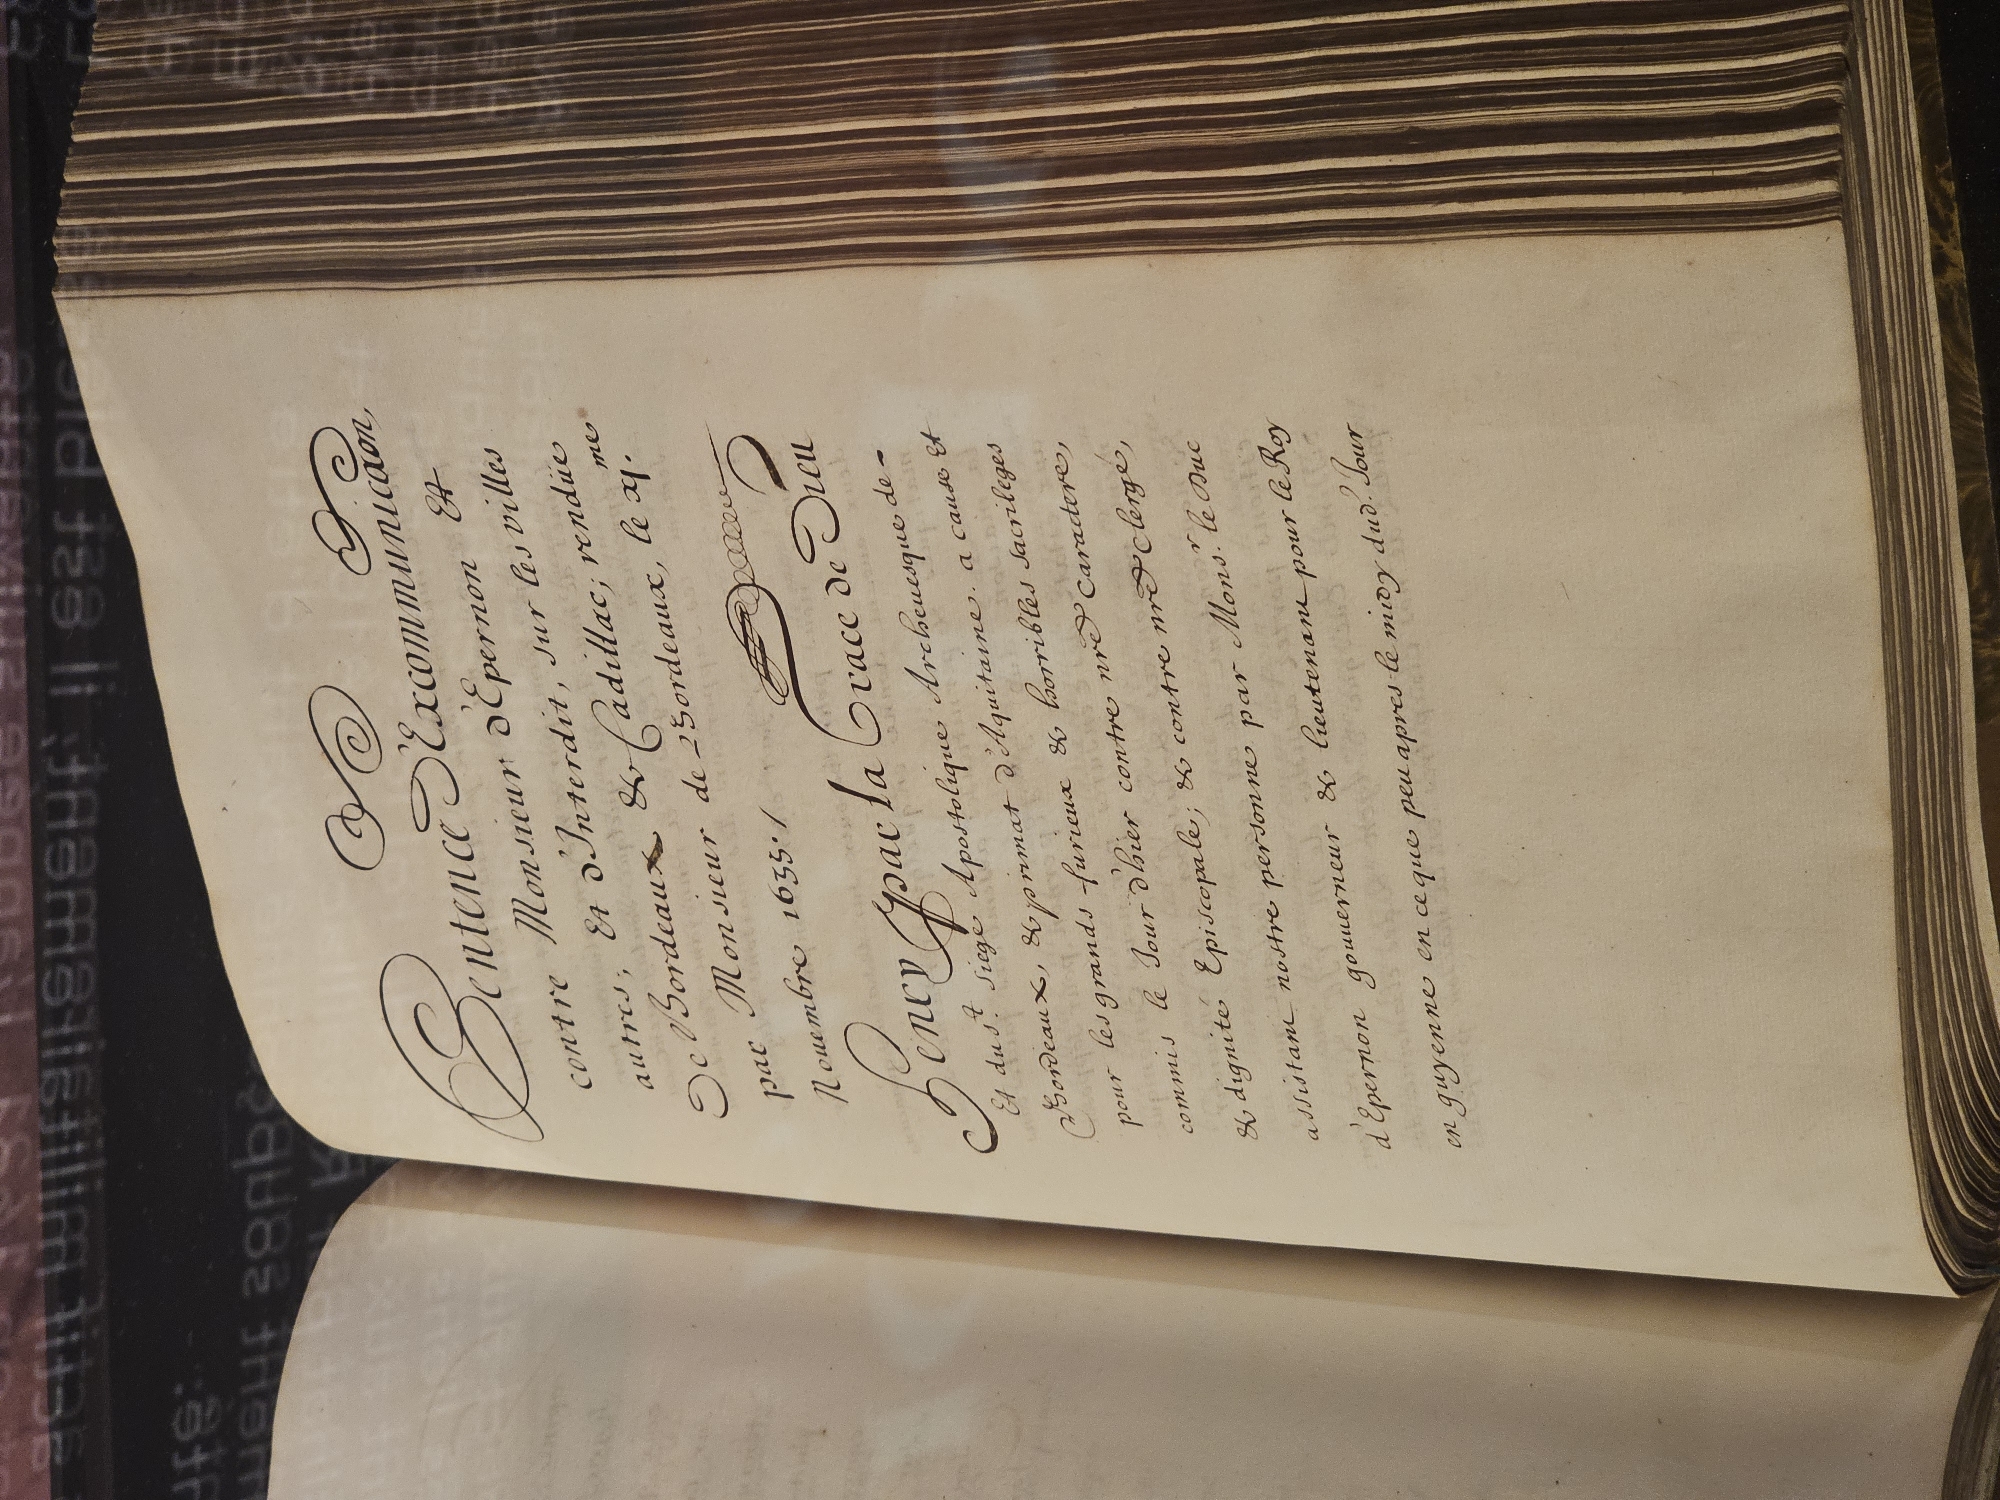 Sentence d'Excommunicaon,
contre Monsieur d'Epernon Et
autres; Et d'Interdit, sur les villes
de Bordeaux & Cadillac; rendüe
par Monsieur de Bordeaux, le xj.me
Nouembre 1633./
Henry par la Grace de Dieu
Et du st. siege Apostolique Archeuesque de-
Bordeaux, & primat d'Aquitaine. a cause Et
pour les grands furieux & horribles sacrileges
commis le Jour d'hier contre nre Caractere,
& dignité Episcopale; & contre nre Clergé,
assistant nostre personne par Mons.r le Duc
d'Epernon gouuerneur & lieutenant pour le Roy
en guyenne en ce que peu apres le midy dud. Jour